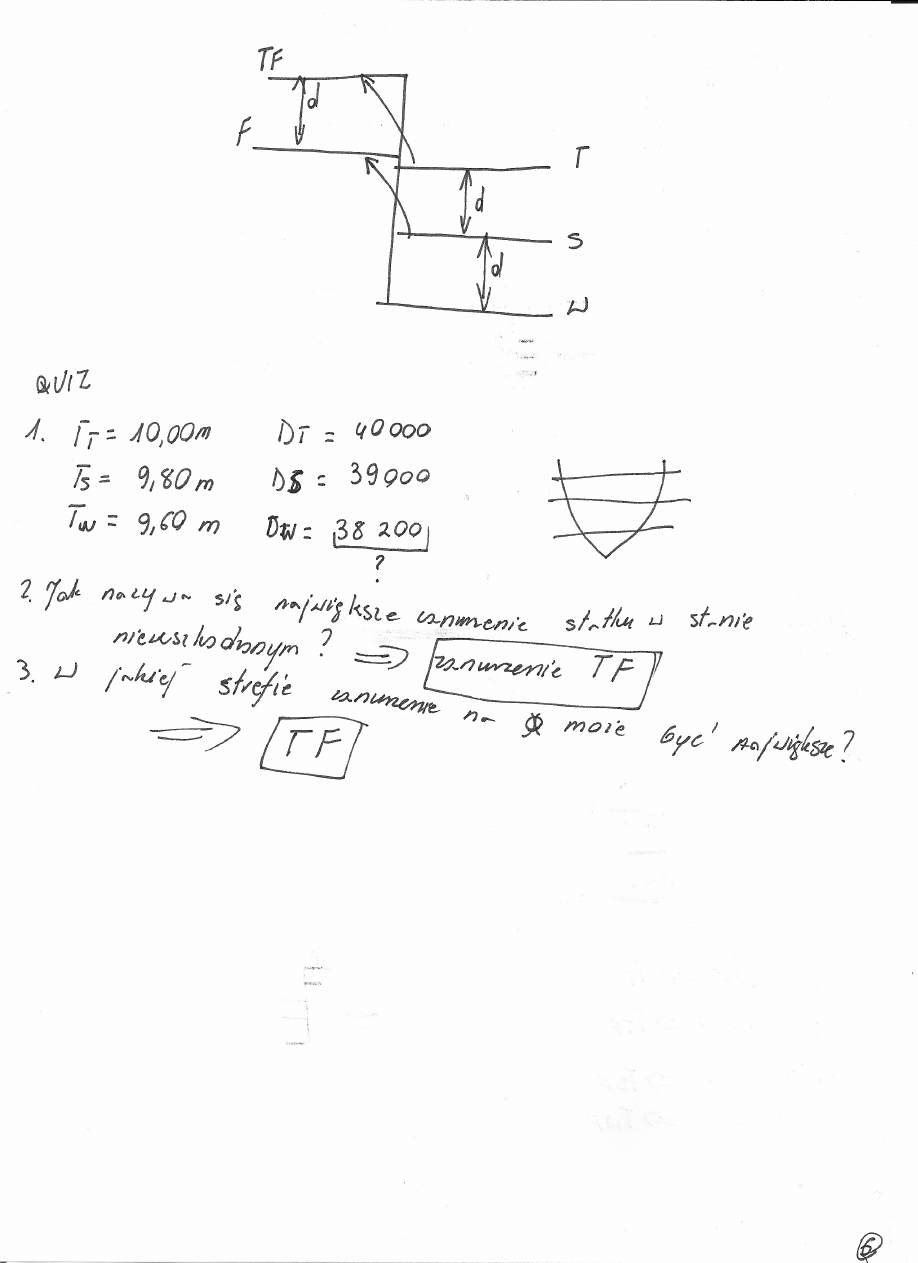 TF
d
F
T
d
S
d
W
QUIZ
1. TT = 10,00m DT = 40000
TS = 9,80 m DS = 39000
TW = 9,60 m DW = 38 200
?
2. Jak nazywa się największe zanurzenie statku w stanie
nieuszkodzonym? => zanurzenie TF
3. W jakiej strefie zanurzenie na może być największe?
=> TF
6